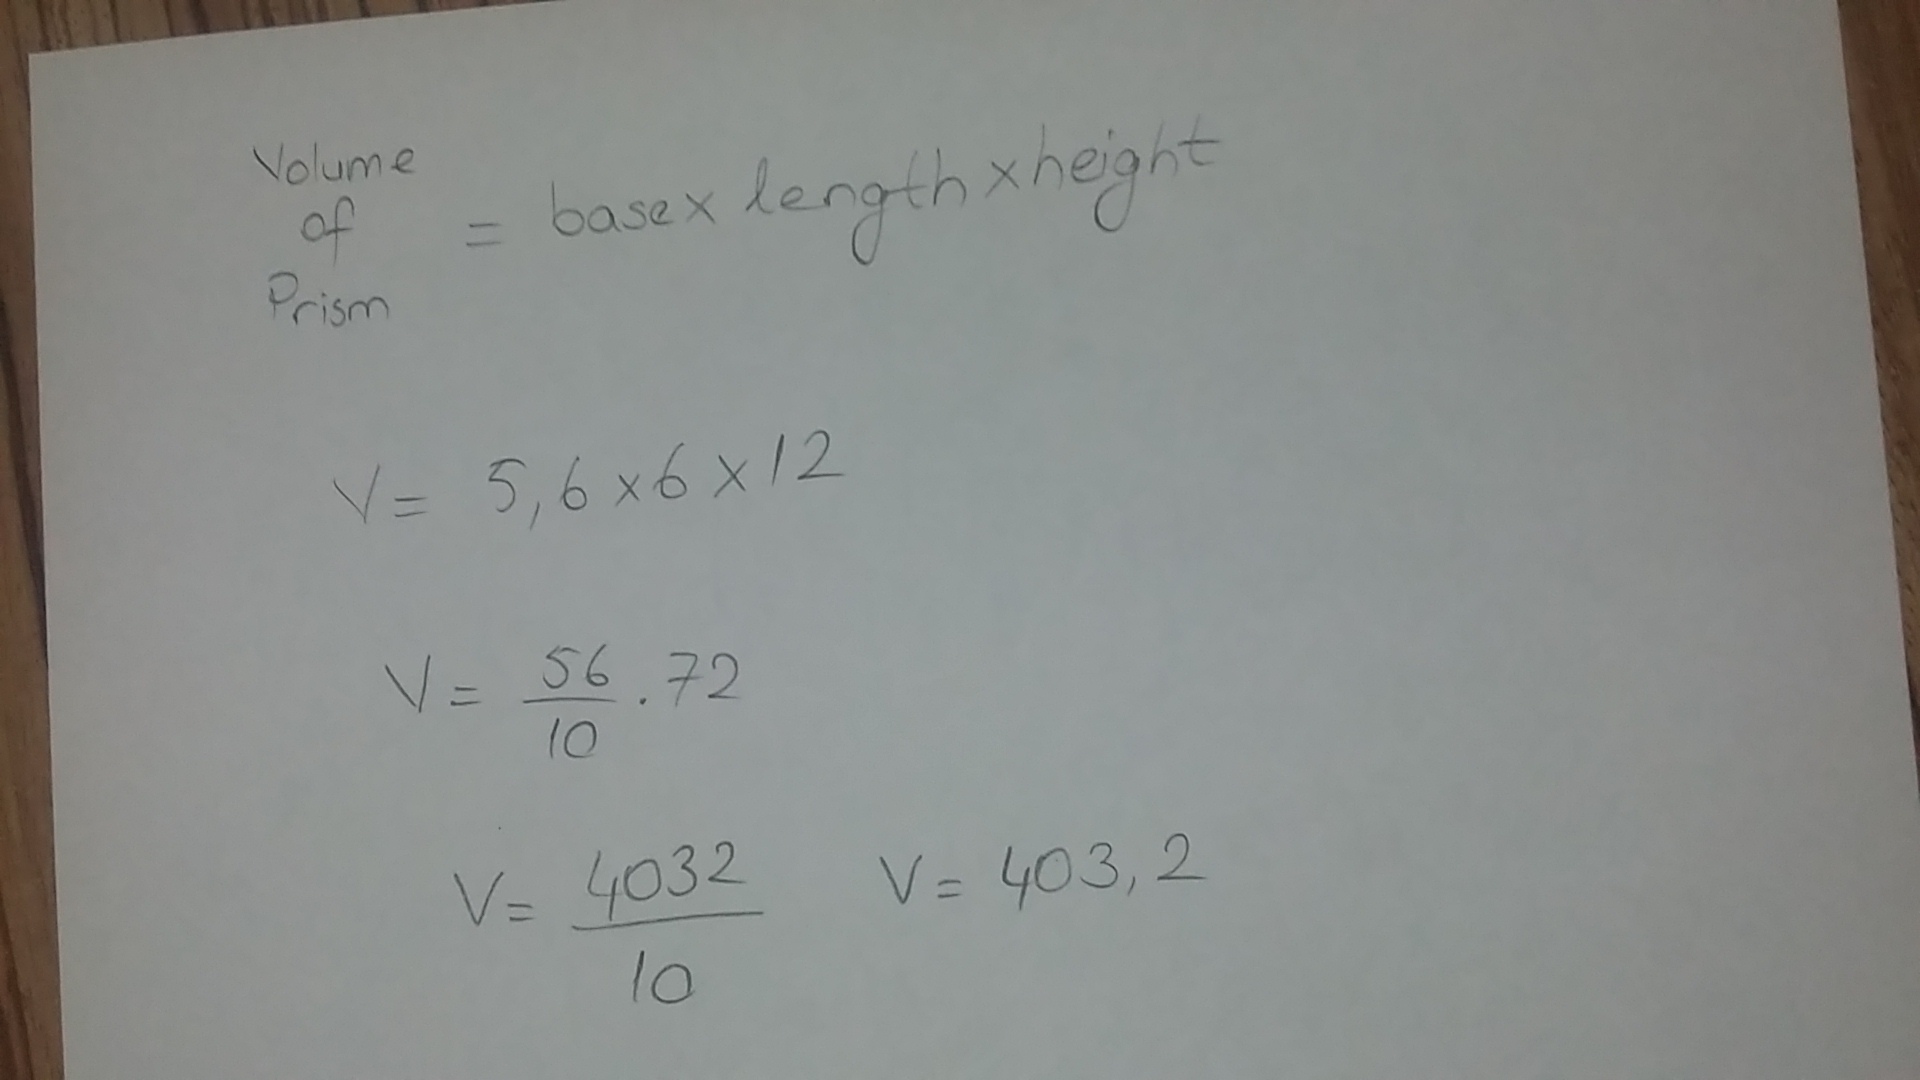 Volume
of
Prism
= base x length x height
V = 5,6 x 6 x 12
V = 56/10 . 72
V = 4032/10 V = 403,2